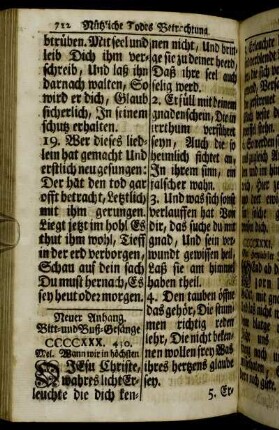 712 Nützliche Todes Betrachtung
btrüben. Mit seel und
leib Dich ihm ver-
schreib, Und laß ihn
darnach walten, So
wird er dich, Glaub
sicherlich, In seinem
schutz erhalten.
19. Wer dieses lied-
lein hat gemacht Und
erstlich neu gesungen:
Der hät den tod gar
offt betracht, Letztlich
mit ihm gerungen.
Liegt jetzt im hohl Es
thut ihm wohl, Tieff
in der erd verborgen,
Schau auf dein sach
Du must hernach, Es
sey heut oder morgen.
Neuer Anhang.
Bitt-und Buß-Gesänge
CCCCXXX. 430.
Mel. Wann wir in höchsten
O JEsu Christe,
wahres licht Er-
leuchte die dich ken-
nen nicht, Und brin-
ge sie zu deiner heerd,
Daß ihre seel auch
selig werd.
2. Erfüll mit deinem
gnadenschein, Die in
irrthum verführet
seyn, Auch die so
heimlich ficht an,
In ihrem sinn, ein
falscher wahn.
3. Und was sich sonst
verlauffen hat Von
dir, das suche du mit
gnad, Und sein ver-
wundt gewissen heil,
Laß sie am himmel
haben theil.
4. Den tauben öffne
das gehör, Die stum-
men richtig reden
lehr, Die nicht beken-
nen wollen frey Was
ihres hertzens glaube
sey.
5. Er-